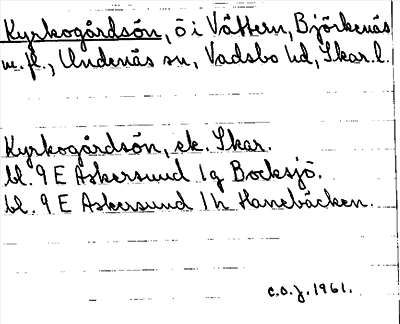 Kyrkogårdsön, ö i Vättern, Björkenäs
m.fl., Undenäs sn, Vadsbo hd, Skar.l.
Kyrkogårdsön, ek. Skar.
bl. 9 E Askersund 1g Bocksjö.
bl. 9 E Askersund 1h Hanebäcken.
c.o.j. 1961.